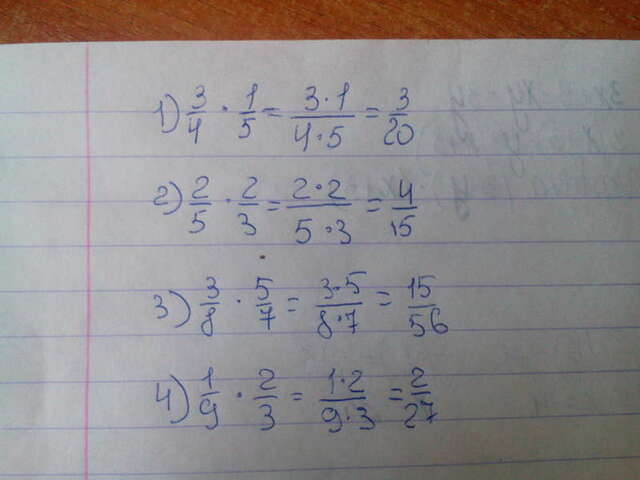 1) 3/4 · 1/5 = 3·1/4·5 = 3/20
2) 2/5 · 2/3 = 2·2/5·3 = 4/15
3) 3/8 · 5/7 = 3·5/8·7 = 15/56
4) 1/9 · 2/3 = 1·2/9·3 = 2/27